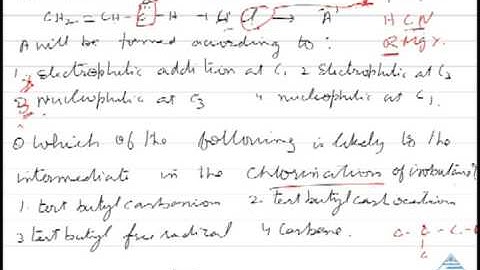 CH2 = CH - C - H + H Cl → 'A'
H C N
A will be formed according to :
R Mgx.
1. Electrophilic addition at C1 2 Electrophilic at C3
3 Nucleophilic at C3 4 nucleophilic at C1.
Which of the following is likely to the
intermediate in the chlorination of isobutane?
1. tert butyl carbanion 2. Tert butyl carbocation
3 tert butyl free radical 4 Carbene.
C - C - C -
C